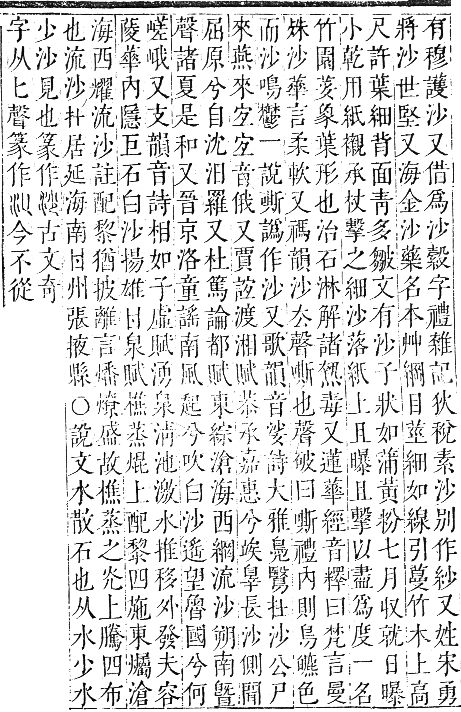 有穆護沙又借爲沙縠字禮雜記狄稅素沙别作紗又姓宋勇
將沙世堅又海金沙藥名本艸綱目莖細如線引蔓竹木上高
尺許葉細背面靑多皺文有沙子狀如蒲黃粉七月収就日曝
小乾用紙襯承杖擊之細沙落紙上且曝且擊以盡爲度一名
竹園荽象葉形也治石淋解諸𤍠毒又蓮華經音釋曰梵言曼
姝沙華言柔軟又禡韻沙去聲嘶也聲破曰嘶禮內則鳥皫色
而沙鳴鬱一說嘶譌作沙又歌韻音娑詩大雅鳧鷖在沙公尸
來燕來宐宐音俄又賈誼渡湘賦恭承嘉惠兮竢辠長沙側聞
屈原兮自沈汨羅又杜篤論都賦東綜滄海西綱流沙朔南曁
聲諸夏是和又晉京洛童謠南風起兮吹白沙遙望魯國兮何
嵯峨又支韻音詩相如子虛賦湧泉淸池激水推移外發夫容
蔆華內隱巨石白沙揚雄甘泉賦樵蒸焜上配黎四施東爥滄
海西耀流沙註配黎猶披離言燔燎盛故樵蒸之炎上騰四布
也流沙在居延海南甘州張掖縣〇說文水散石也从水少水
少沙見也篆作古文奇
字从匕聲篆作今不從